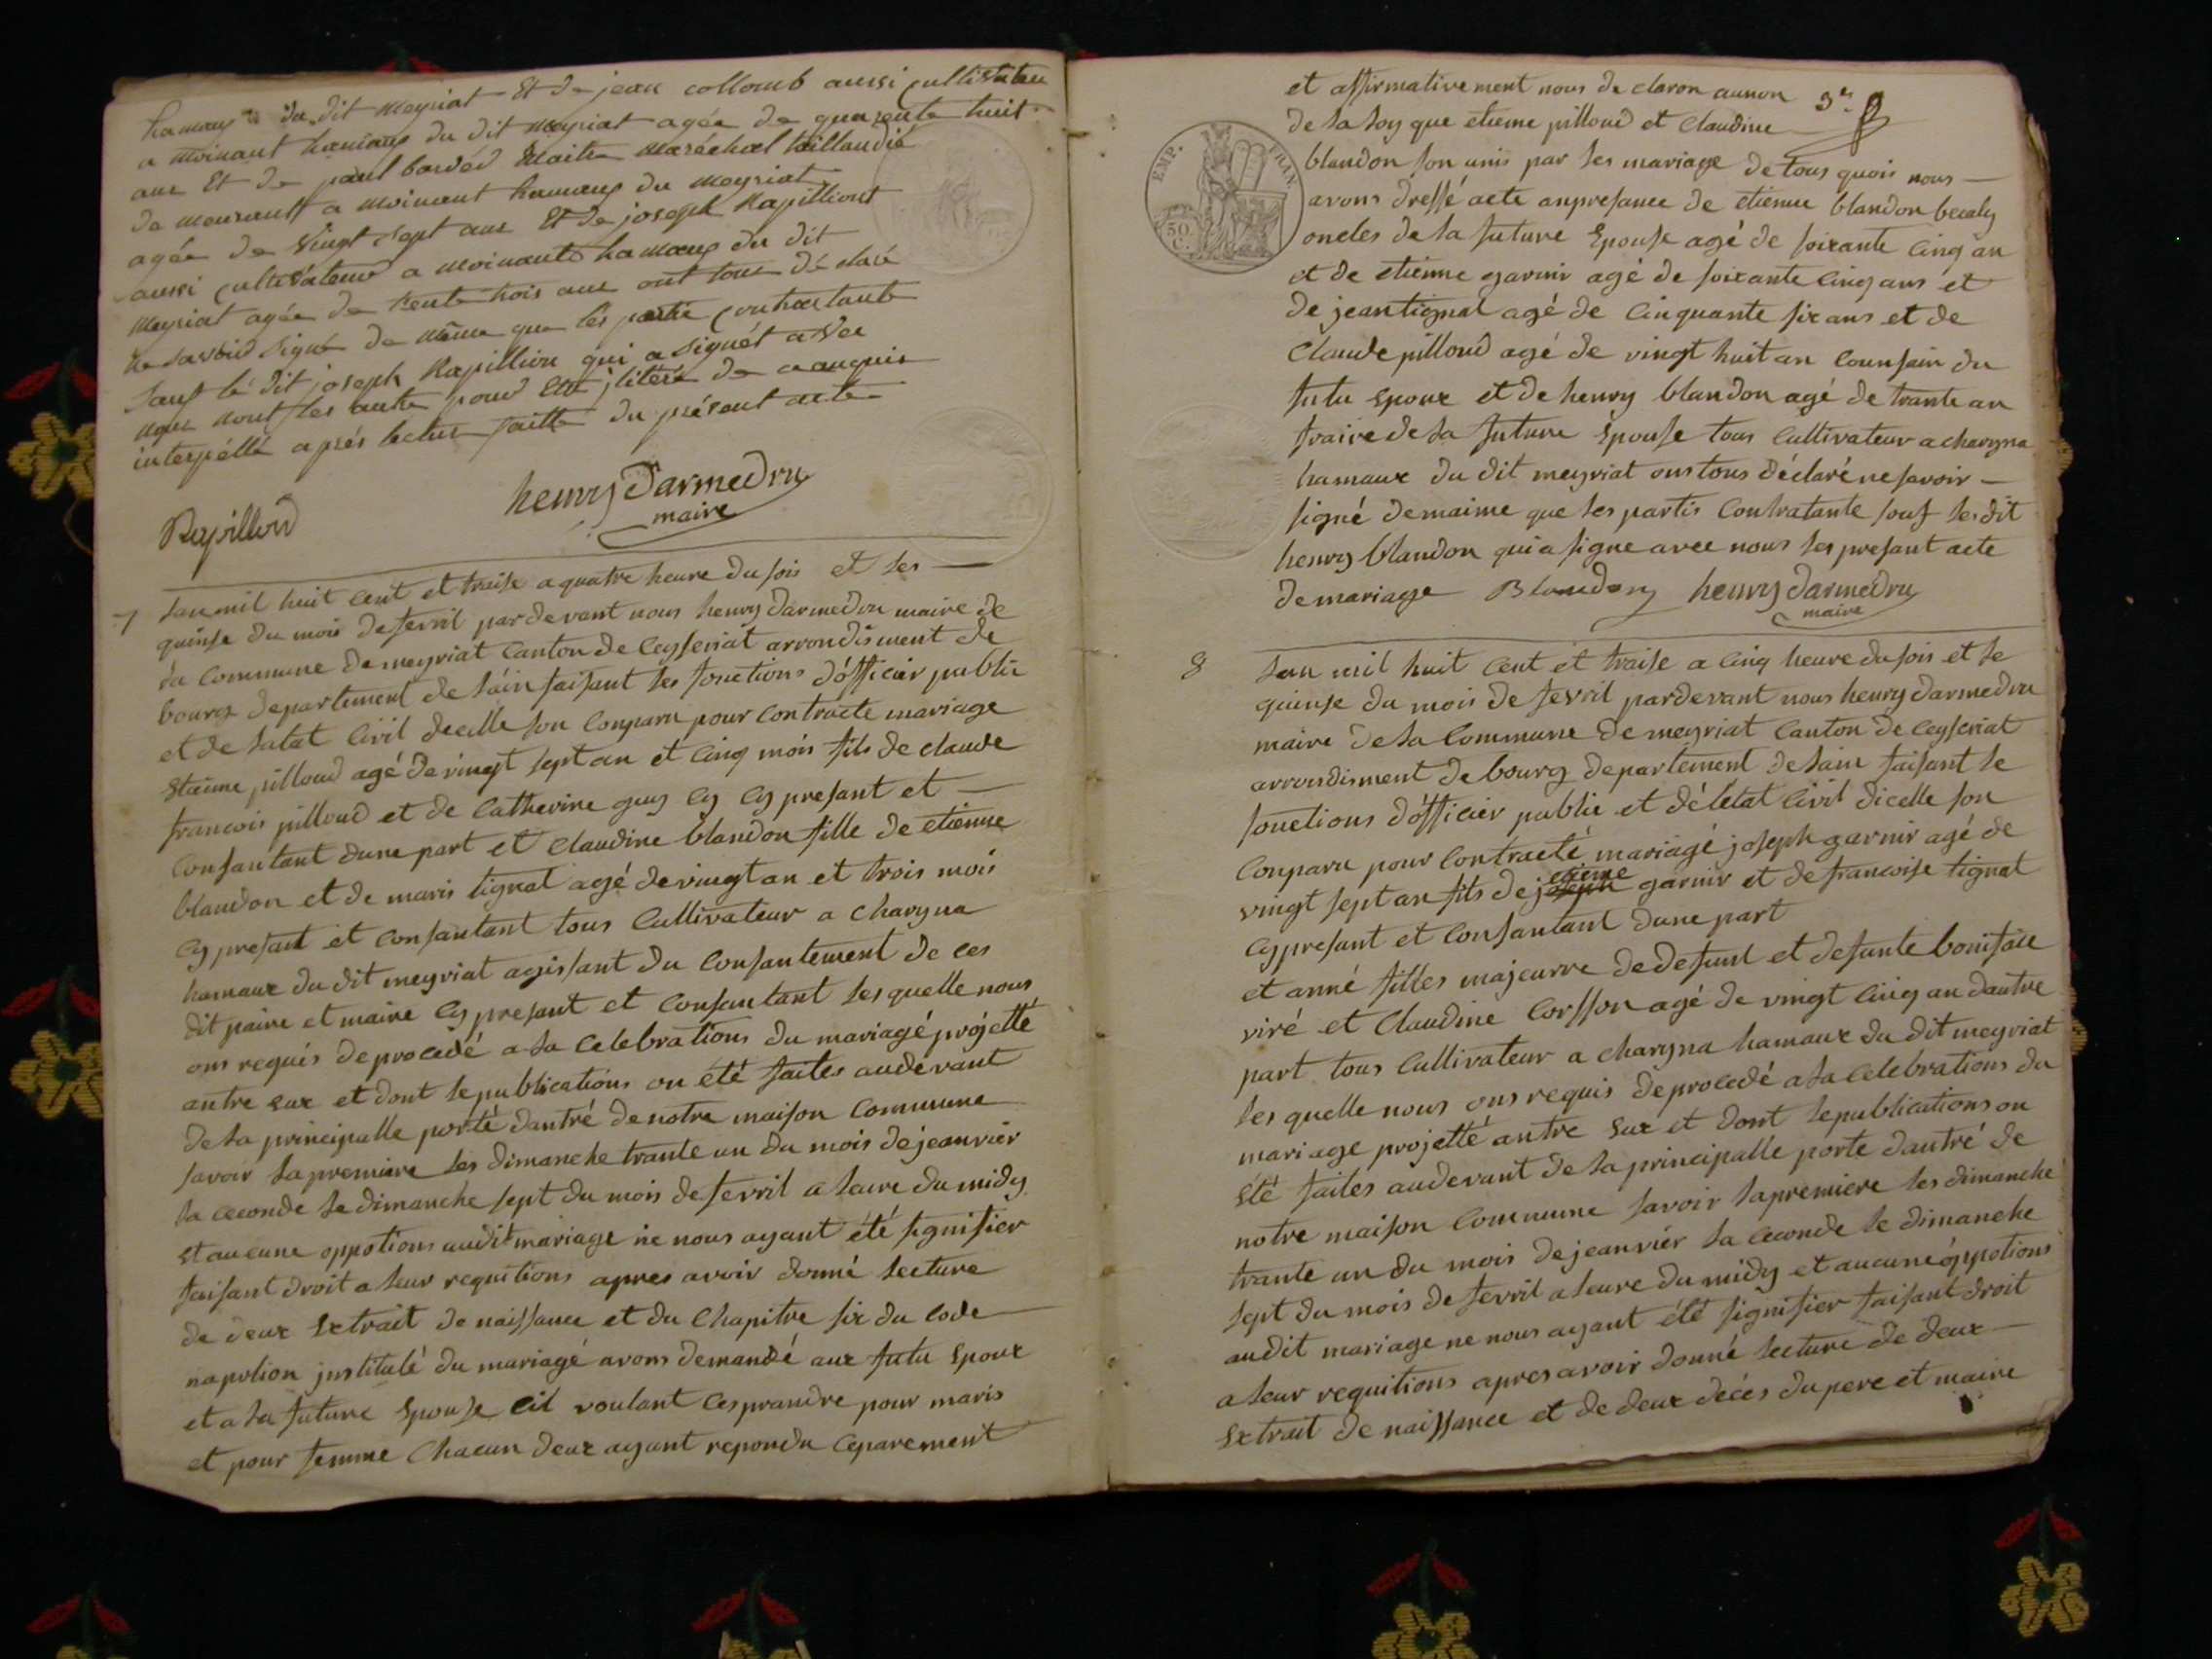 hamaux du dit meyriat Et de jean colloub aussi cultivateu
a moinant hamaux du dit meyriat agée de quarente huit
ans Et de paul bardéd maitre maréchal taillandié
de meurant a moinant hamaux du meyriat
agée de vingt sept ans Et de joseph Rapilliont
aussi cultivateur a moinants hamaux du dit
meyriat agée de trente trois ans ont tous dé claré
ne savoir signé de même que les partie contractante
sauf le dit joseph Rapillion qui a signét avec
nous nont les autre pour être
interpéllé aprés lecture faitte du présent acte
Rapilliond
henry Darmedru
maire
7 Lan mil huit cent et traise a quatre heure du soir et les
quinse du mois de fevril pardevant nous henry Darmedru maire de
la commune de meyriat Canton de Ceyseriat arrondisment de
bourg departement de lain faisant les fonctions dofficier public
et de latat Civil dicelle son Conparu pour Contracte mariage
Etienne pilloud agé de vingt sept an et cinq mois fils de claude
francois pilloud et de Catherine guy Cy Cy presant et
Consantant dune part et Claudine blandon fille de etienne
blandon et de maris tignat agé de vingt an et trois mois
Cy presant et consantant tous Cultivateur a charyna
hamaux du dit meyriat agissant du Consantement de ces
dit paire et maire Cy presant et Consantant les quelle nous
ons requis de procedé a la Celebrations du mariagé projetté
antre eux et dont le publications on été faites audevant
de la principalle porté dantré de notre maison Commune
savoir la premiere les dimanche trante un du mois de jeanvier
la ceconde le dimanche sept du mois de fevril a leure du midy
Et aucune oppotions audit mariage ne nous ayant été signifier
faisant droit a leur requitions apres avoir donné lecture
de deux Extrait de naissance et du Chapitre six du code
napolion justitulé du mariagé avons demandé aux futu Epoux
et a la future Epouse cil voulant ces prandre pour maris
et pour femme Chacun deux ayant repondu Ceparement
et affirmativement nous de claron aunon
3e
de la loy que etienne pilloud et Claudine
blandon son unis par les mariage de tous quois nous
avons dressé acte anpresance de etienne blandon
oncles de la future Epouse agé de soixante cinq an
et de etienne garnir agé de soixante cinq ans et
de jean tignat agé de Cinquante six ans et de
Claude pilloud agé de vingt huit an Counsain du
futu Epoux et de henry blandon agé de trante an
fraire de la future Epouse tous Cultivateur a charyna
hamaux du dit meyriat ons tous déclaré ne savoir
signé demaime que les partis Contratante souf les dit
henry blandon qui a signe avec nous les presant acte
de mariage Blandon henry darmedru
maire
EMP. FRAN.
50 C.
8 Lan mil huit cent et traise a cinq heure du soir et le
quinse du mois de fevril pardevant nous henry darmedru
maire de la Commune de meyriat Canton de Ceyseriat
arrondisment de bourg departement de lain faisant le
fonctions dofficier public et dé letat Civil dicelle son
Conparu pour Contracté mariagé joseph garnir agé de
etiene
vingt sept an fils de joseph garnir et de francoise tignat
Cy presant et Consantant dune part
et anné filles majeurre de defunt et defunte boniface
viré et Claudine Corsson agé de vingt cinq an dautre
part tous Cultivateur a charyna hamaux du dit meyriat
les quelle nous ons requis de procedé a la Celebrations du
mariage projetté antre Eux et dont le publications on
été faites audevant de la principalle porte dantré de
notre maison Commune savoir la premiere les dimanche
trante un du mois de jeanvier la ceconde le dimanche
sept du mois de fevril a leure du midy et aucune oppotions
audit mariage ne nous ayant été signifier faisant droit
a leur requitions apres avoir donné lecture de deux
Extrait de naissance et de deux decés du pere et maire